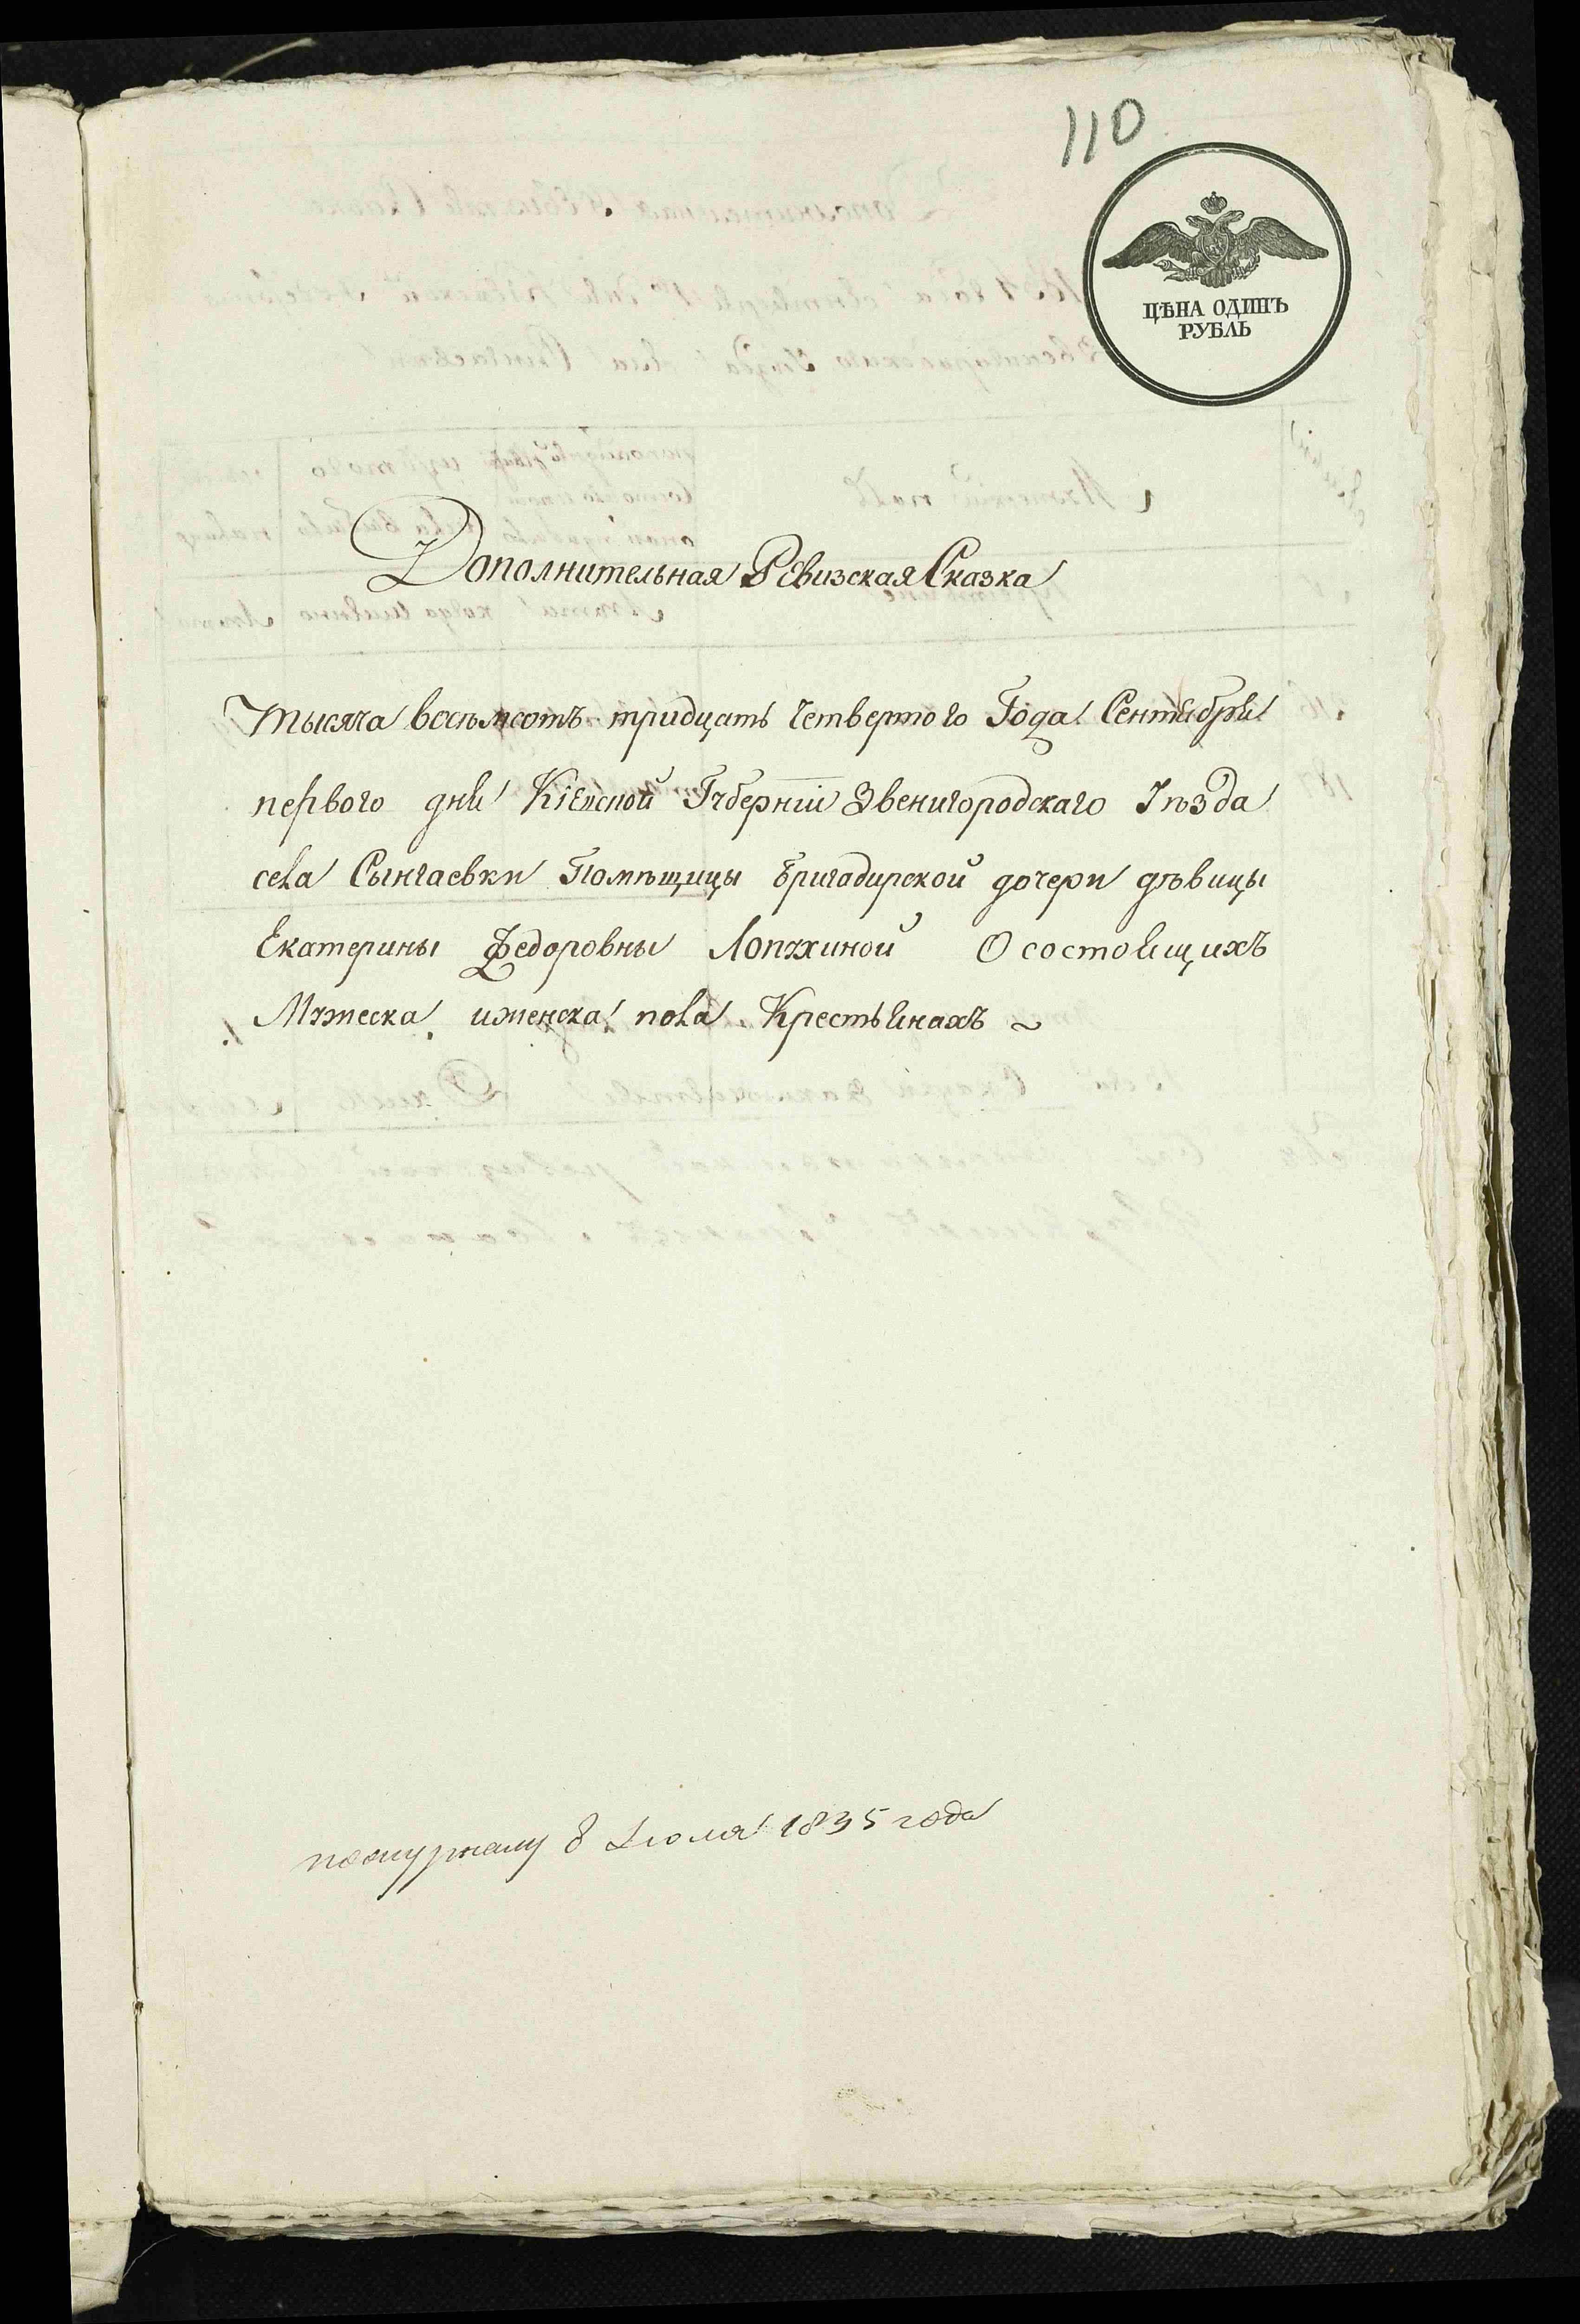 110
ЦѢНА ОДИНЪ
РУБЛЬ
Дополнительная Ревизская Сказка
Тысяча восѣмсотъ тридцать Четвертого Года Сентября
первого дня Кіевской Губерніи Звенигородскаго Уѣзда
села Сынгаевки Помѣщицы бригадирской дочери дѣвицы
Екатерины Федоровны Лопухиной О состоящихъ
Мужеска и женска пола Крестьянахъ ~
по журналу 8 Июля 1835 года